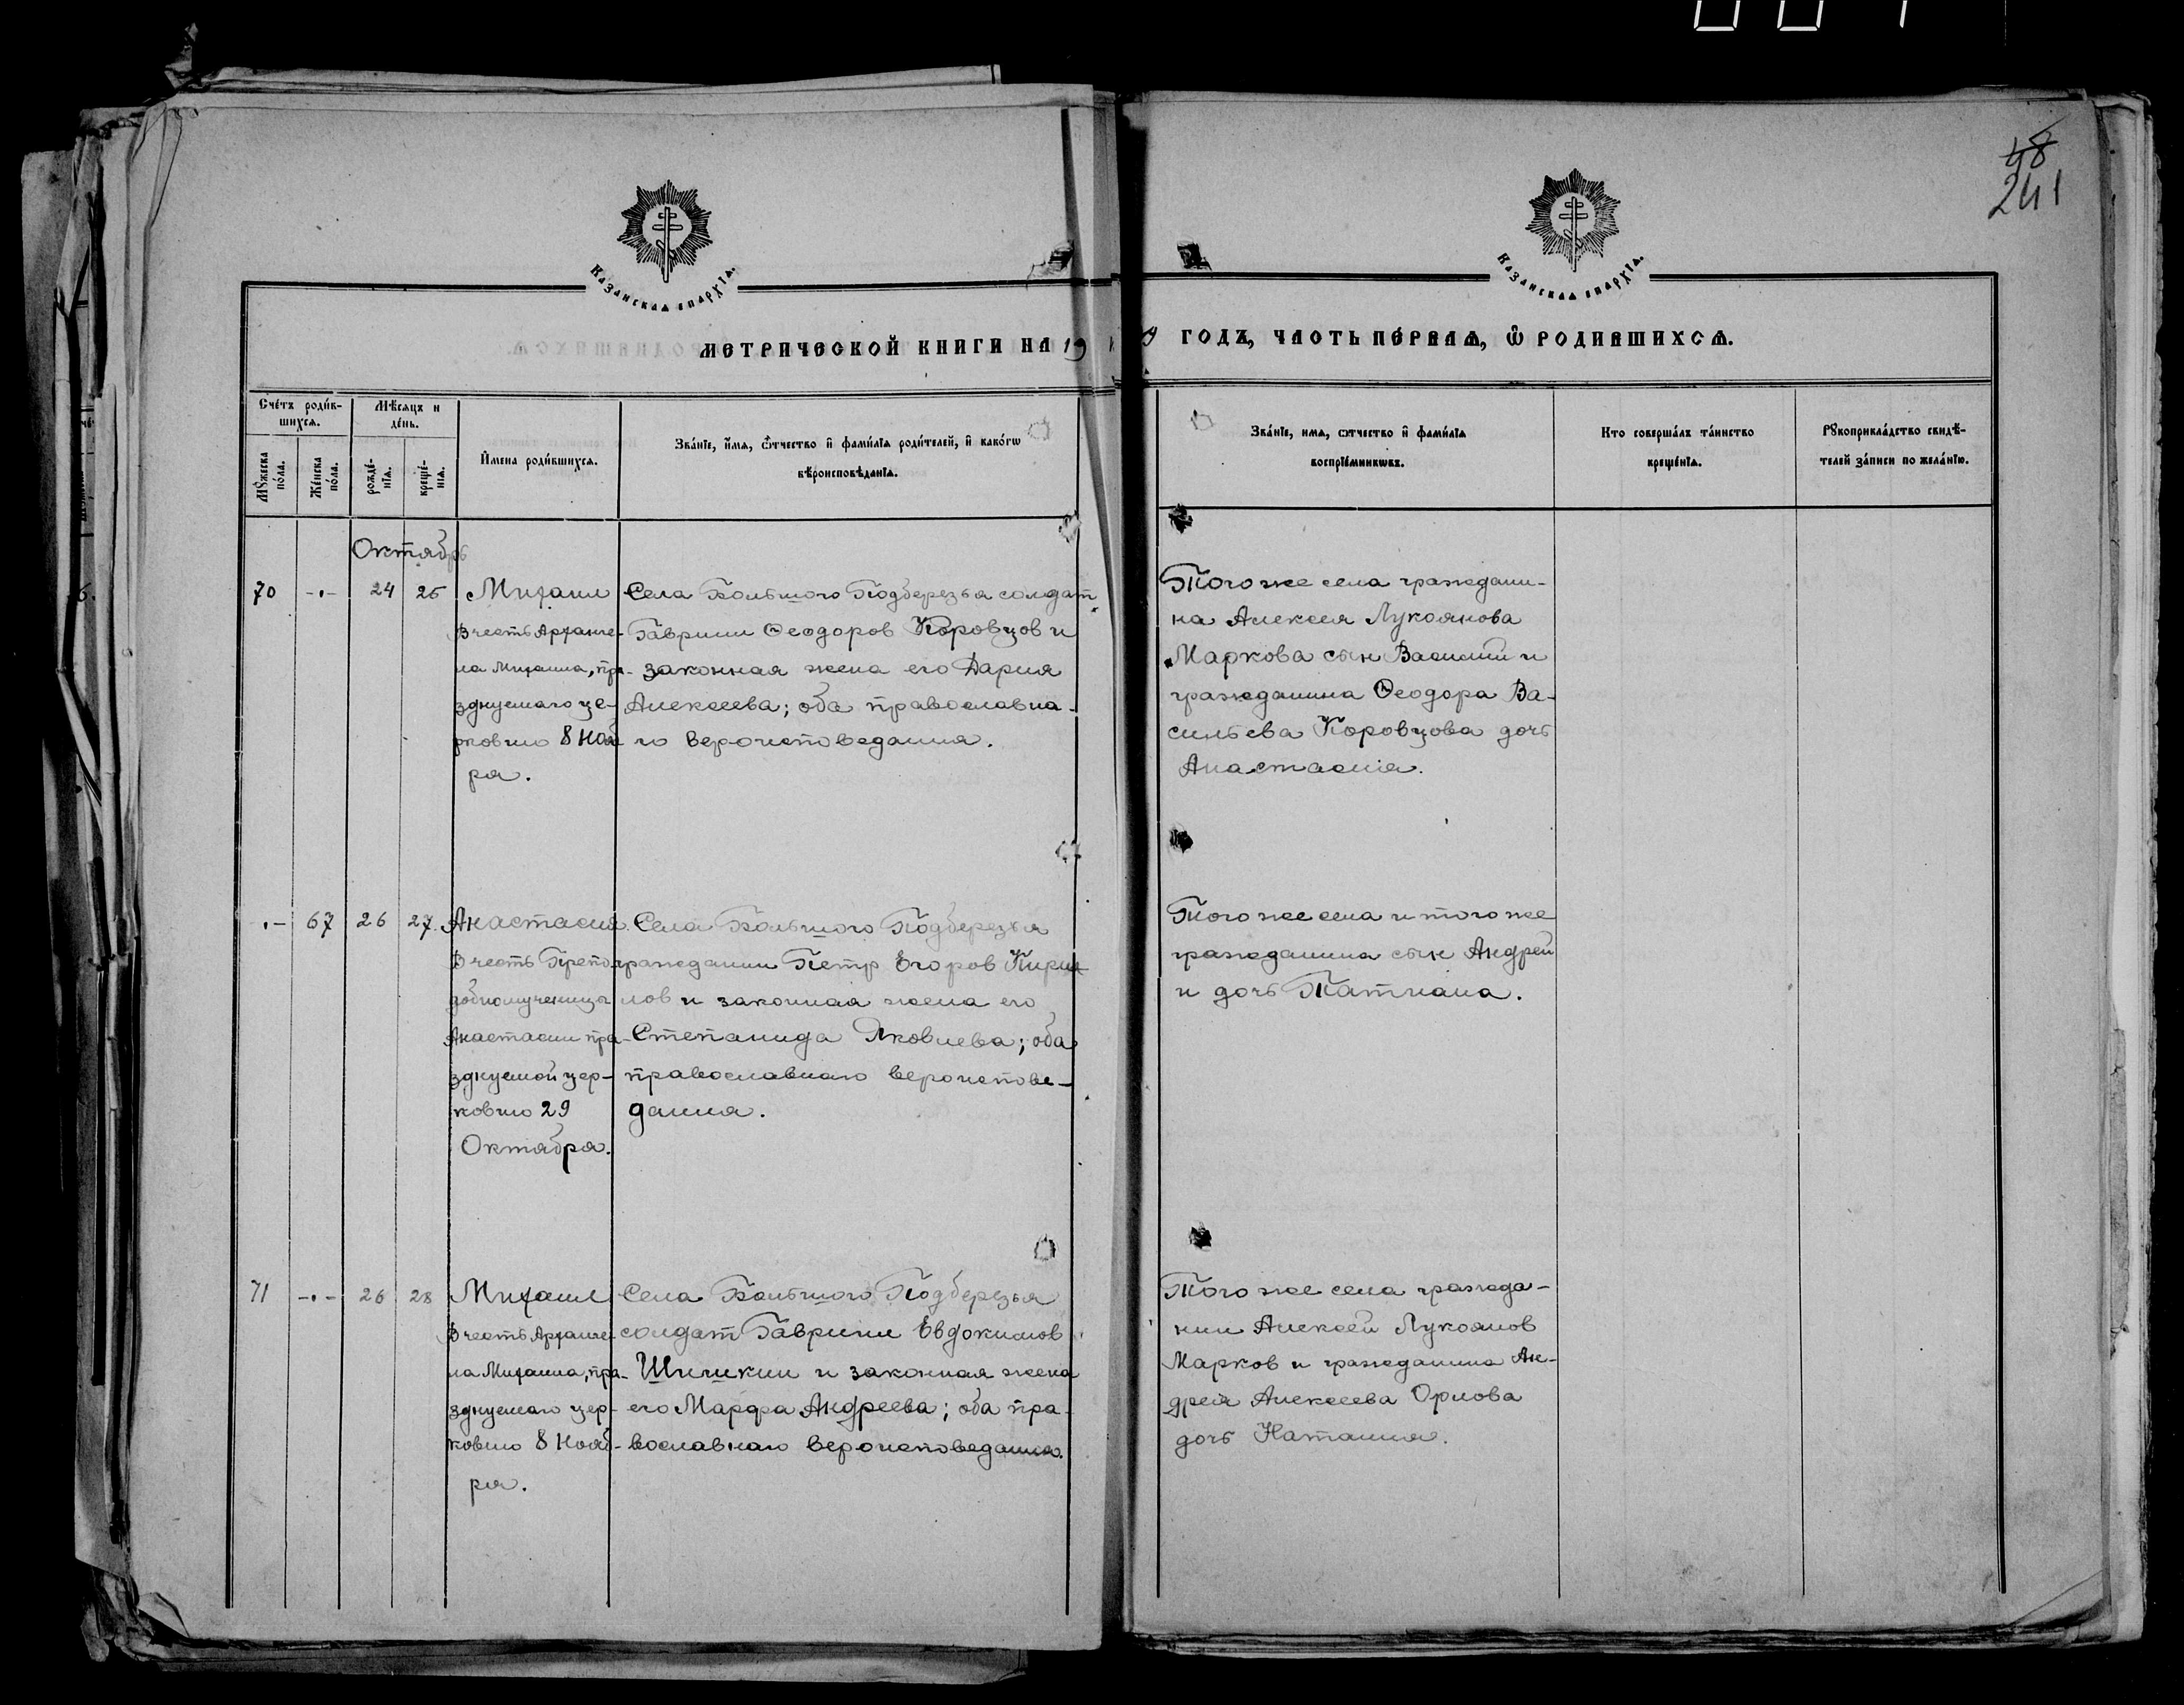 48
241
Казанская епархїа.
Казанская епархїа.
МЕТРИЧЕСКОЙ КНИГИ НА 19
9 ГОДЪ, ЧАСТЬ ПЕ́РВАЯ, Ѿ РОДИВШИХСѦ.
Сче́тъ роди́в-
шихсѧ.
Мѣ́сѧцъ и
де́нь.
Мꙋ́жеска
по́ла.
Же́нска
по́ла.
рожде́-
нїѧ.
креще́-
нїѧ.
И҆мена роди́вшихсѧ.
Зва́нїе, и҆́мѧ, ѻ҆́тчество и҆ фами́лїѧ роди́телей, и҆ како́гѡ
вѣроисповѣ́данїѧ.
Зва́нїе, имѧ, ѻтчество и҆ фами́лїѧ
воспрїе́мникѡвъ.
Кто соверша́лъ та́инство
креще́нїѧ.
Рꙋкоприкла́дство свидѣ́-
телей за́писи по жела́нїю.
Октябрь
70 -·- 24 25 Михаил
В честь Арханге-
ла Михаила, пра-
зднуемаго це-
рковию 8 Нояб
ря.
Села Большого Подберезья солдат
Гавриил Ѳеодоров Коровцов и
законная жена его Дария
Алексеева; оба православна-
го вероисповедания.
Того же села граждани-
на Алексея Лукоянова
Маркова сын Василий и
гражданина Ѳеодора Ва-
сильева Коровцова дочь
Анастасия.
·- 67 26 27. Анастасия.
В честь Препо
добномученицы
Анастасии пра-
зднуемой цер-
ковию 29
Октября.
Села Большого Подберезья
гражданин Петр Егоров Кирил
лов и законная жена его
Степанида Яковлева; оба
православнаго вероиспове-
дания.
Того же села и того же
гражданина сын Андрей
и дочь Татиана.
71 -·- 26 28 Михаил
В честь Арханге-
ла Михаила, пра-
зднуемаго цер-
ковию 8 Нояб-
ря.
Села Большого Подберезья
солдат Гавриил Евдокимов
Шишкин и законная жена
его Марфа Андреева; оба пра-
вославнаго вероисповедания.
Того же села гражда-
нин Алексей Лукоянов
Марков и гражданина Ан-
дрея Алексеева Орлова
дочь Наталия.